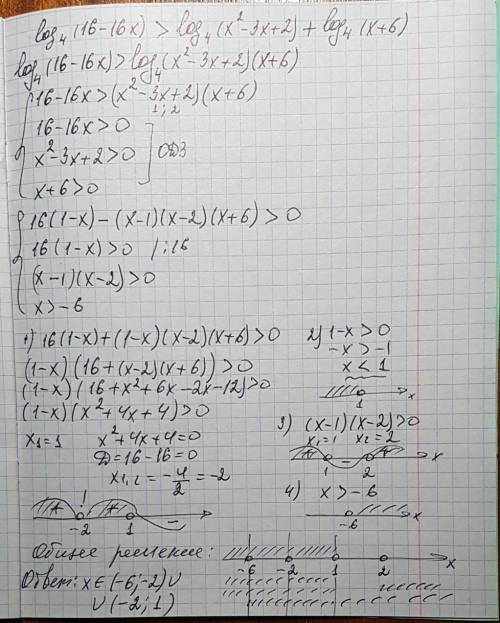 log₄(16-16x) > log₄(x²-3x+2) + log₄(x+6)
log₄(16-16x) > log₄(x²-3x+2)(x+6)
16-16x > (x²-3x+2)(x+6)
1; 2
16-16x>0
x²-3x+2>0
ОДЗ
x+6>0
16(1-x)-(x-1)(x-2)(x+6)>0
16(1-x)>0 /:16
(x-1)(x-2)>0
x>-6
1) 16(1-x)+(1-x)(x-2)(x+6)>0
(1-x)(16+(x-2)(x+6))>0
(1-x)(16+x²+6x-2x-12)>0
(1-x)(x²+4x+4)>0
x₁=1 x²+4x+4=0
D=16-16=0
x₁,₂=-4/2=-2
+ + -
-2 1
2) 1-x>0
-x>-1
x<1
1 x
3) (x-1)(x-2)>0
x₁=1 x₂=2
+ - + x
1 2
4) x>-6
-6 x
Общее решение:
-6 -2 1 2 x
Ответ: x∈(-6;-2)∪
∪(-2;1)